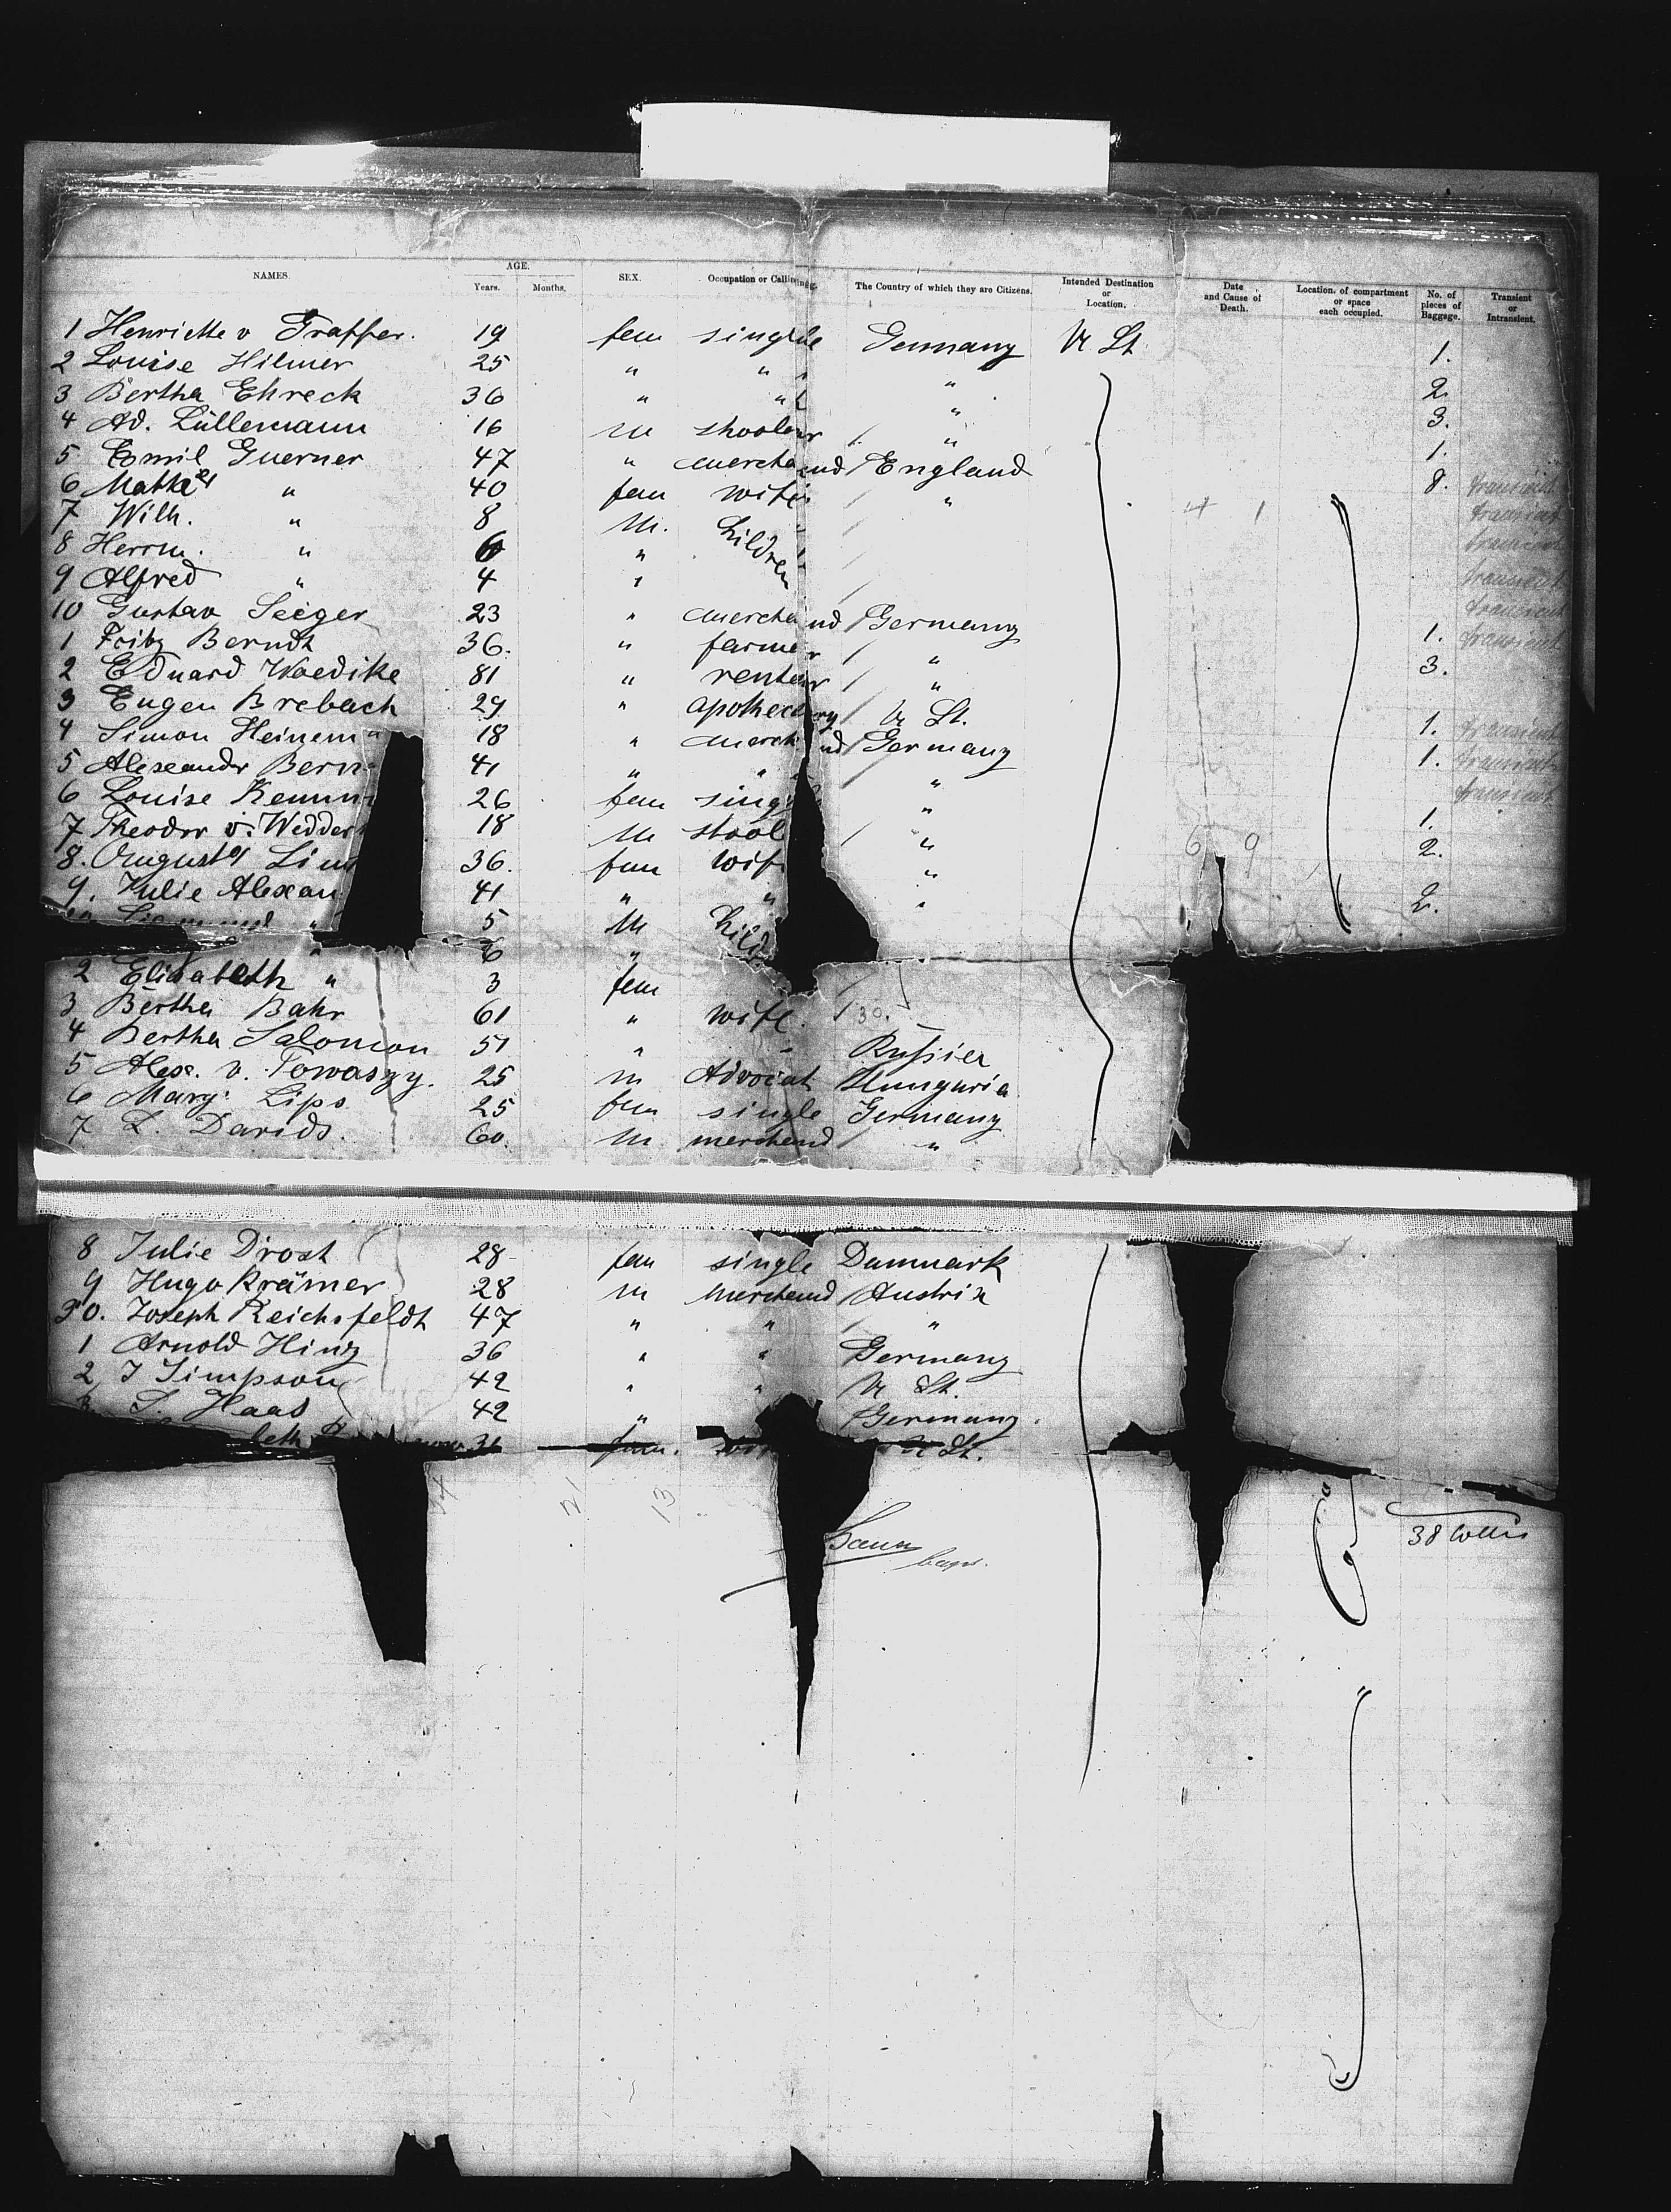 NAMES. AGE. Years. Months. SEX. Occupation or Calling. The Country of which they are Citizens. Intended Destination or Location. Date and Cause of Death. Location of compartment or space each occupied. No. of pieces of Baggage. Transient or Intransient.
1 Henriette v 19 fem single Germany U St 1.
2 Louise Hilmer 25 " " "
3 Bertha Ehreck 36 " " " 2.
4 Ad. Lüllemann 16 m shooler " 3.
5 Emil Guerner 47 " merchand England 1.
6 " 40 fem wife " 8. transient
7 Wilh. " 8 m. children transient
8 Herrm. " 6 " transient
9 Alfred " 4 " transient
10 Gustav Seeger 23 " merchand Germany transient
1 Fritz Berndt 36. " farmer " 1. transient
2 Eduard Woedike 81 " renteur " 3.
3 Eugen Brebach 29 " apothecary U St.
4 Simon Heinem 18 " merchand Germany 1. transient
5 Alexander Bern 41 " " " 1. transient
6 Louise Kemm 26 fem single " transient
7 Theodor v. Wedder 18 m shool " 1.
8. Auguste Lin 36. fem wif " 2.
9. Julie Alexan 41 " " "
5 m Child 2.
6 "
2 Elisabeth " 3 fem
3 Bertha Bahr 61 " wife. 30.
4 Bertha Salomon 51 " " Russia
5 Alex. v. 25 m Advocat Hungaria
6 Mary Lips 25 fem single Germany
7 L. Davids. 60. m. merchand "
8 Julie Drost 28 fem single Danmark
9 Hugo Krämer 28 m merchand Austria
30. Joseph Reichsfeldt 47 " " "
1 Arnold Hinz 36 " " Germany
2 J Simpson 42 " " U St.
3 S. Haas 42 " Germany.
beth fem. U St.
21 13
38 Collis
capt.